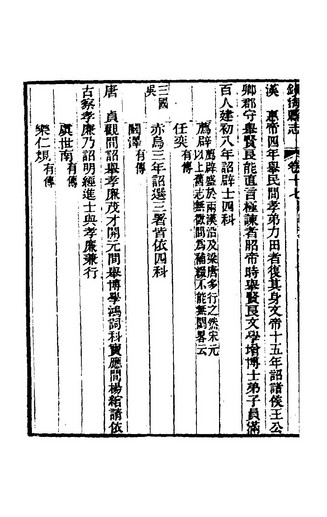 鎮海縣志
卷十七
漢 惠帝四年舉民間孝弟力田者復其身文帝十五年詔諸侯王公
卿郡守舉賢良能直言極諫者昭帝時舉賢良文學增博士弟子員滿
百人建初八年詔辟士四科
薦辟 薦辟盛於兩漢沿及梁唐多行之然宋元
以上舊志無徵間為補綴不能無闕畧云
任奕 有傳
三國
吳
赤烏三年詔選三署皆依四科
闞澤 有傳
唐 貞觀間詔舉孝廉茂才開元間舉博學鴻詞科寶應間楊綰請依
古察孝廉乃詔明經進士與孝廉兼行
虞世南 有傳
樂仁規 有傳